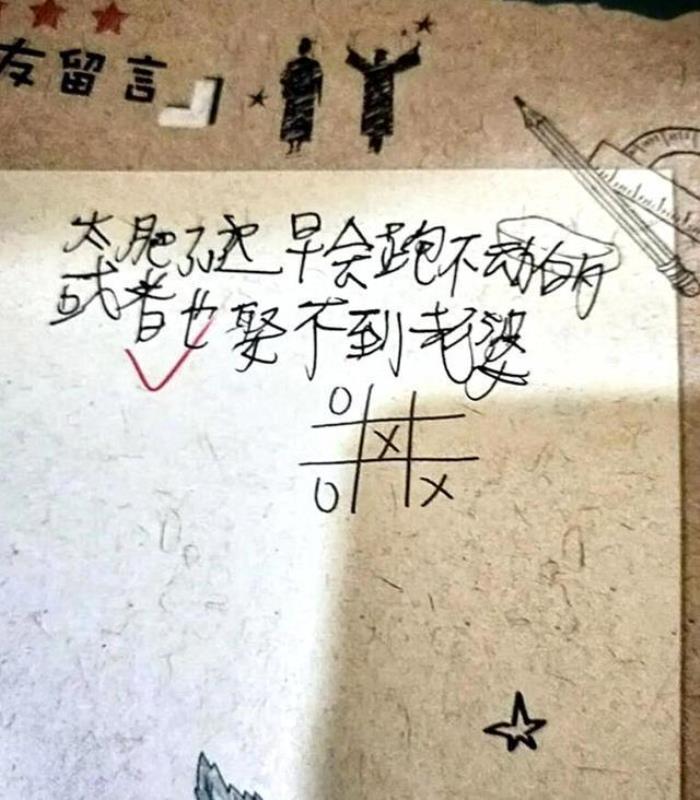 友留言
太肥了这早会跑不动的
或者也娶不到老婆
O
X
O X